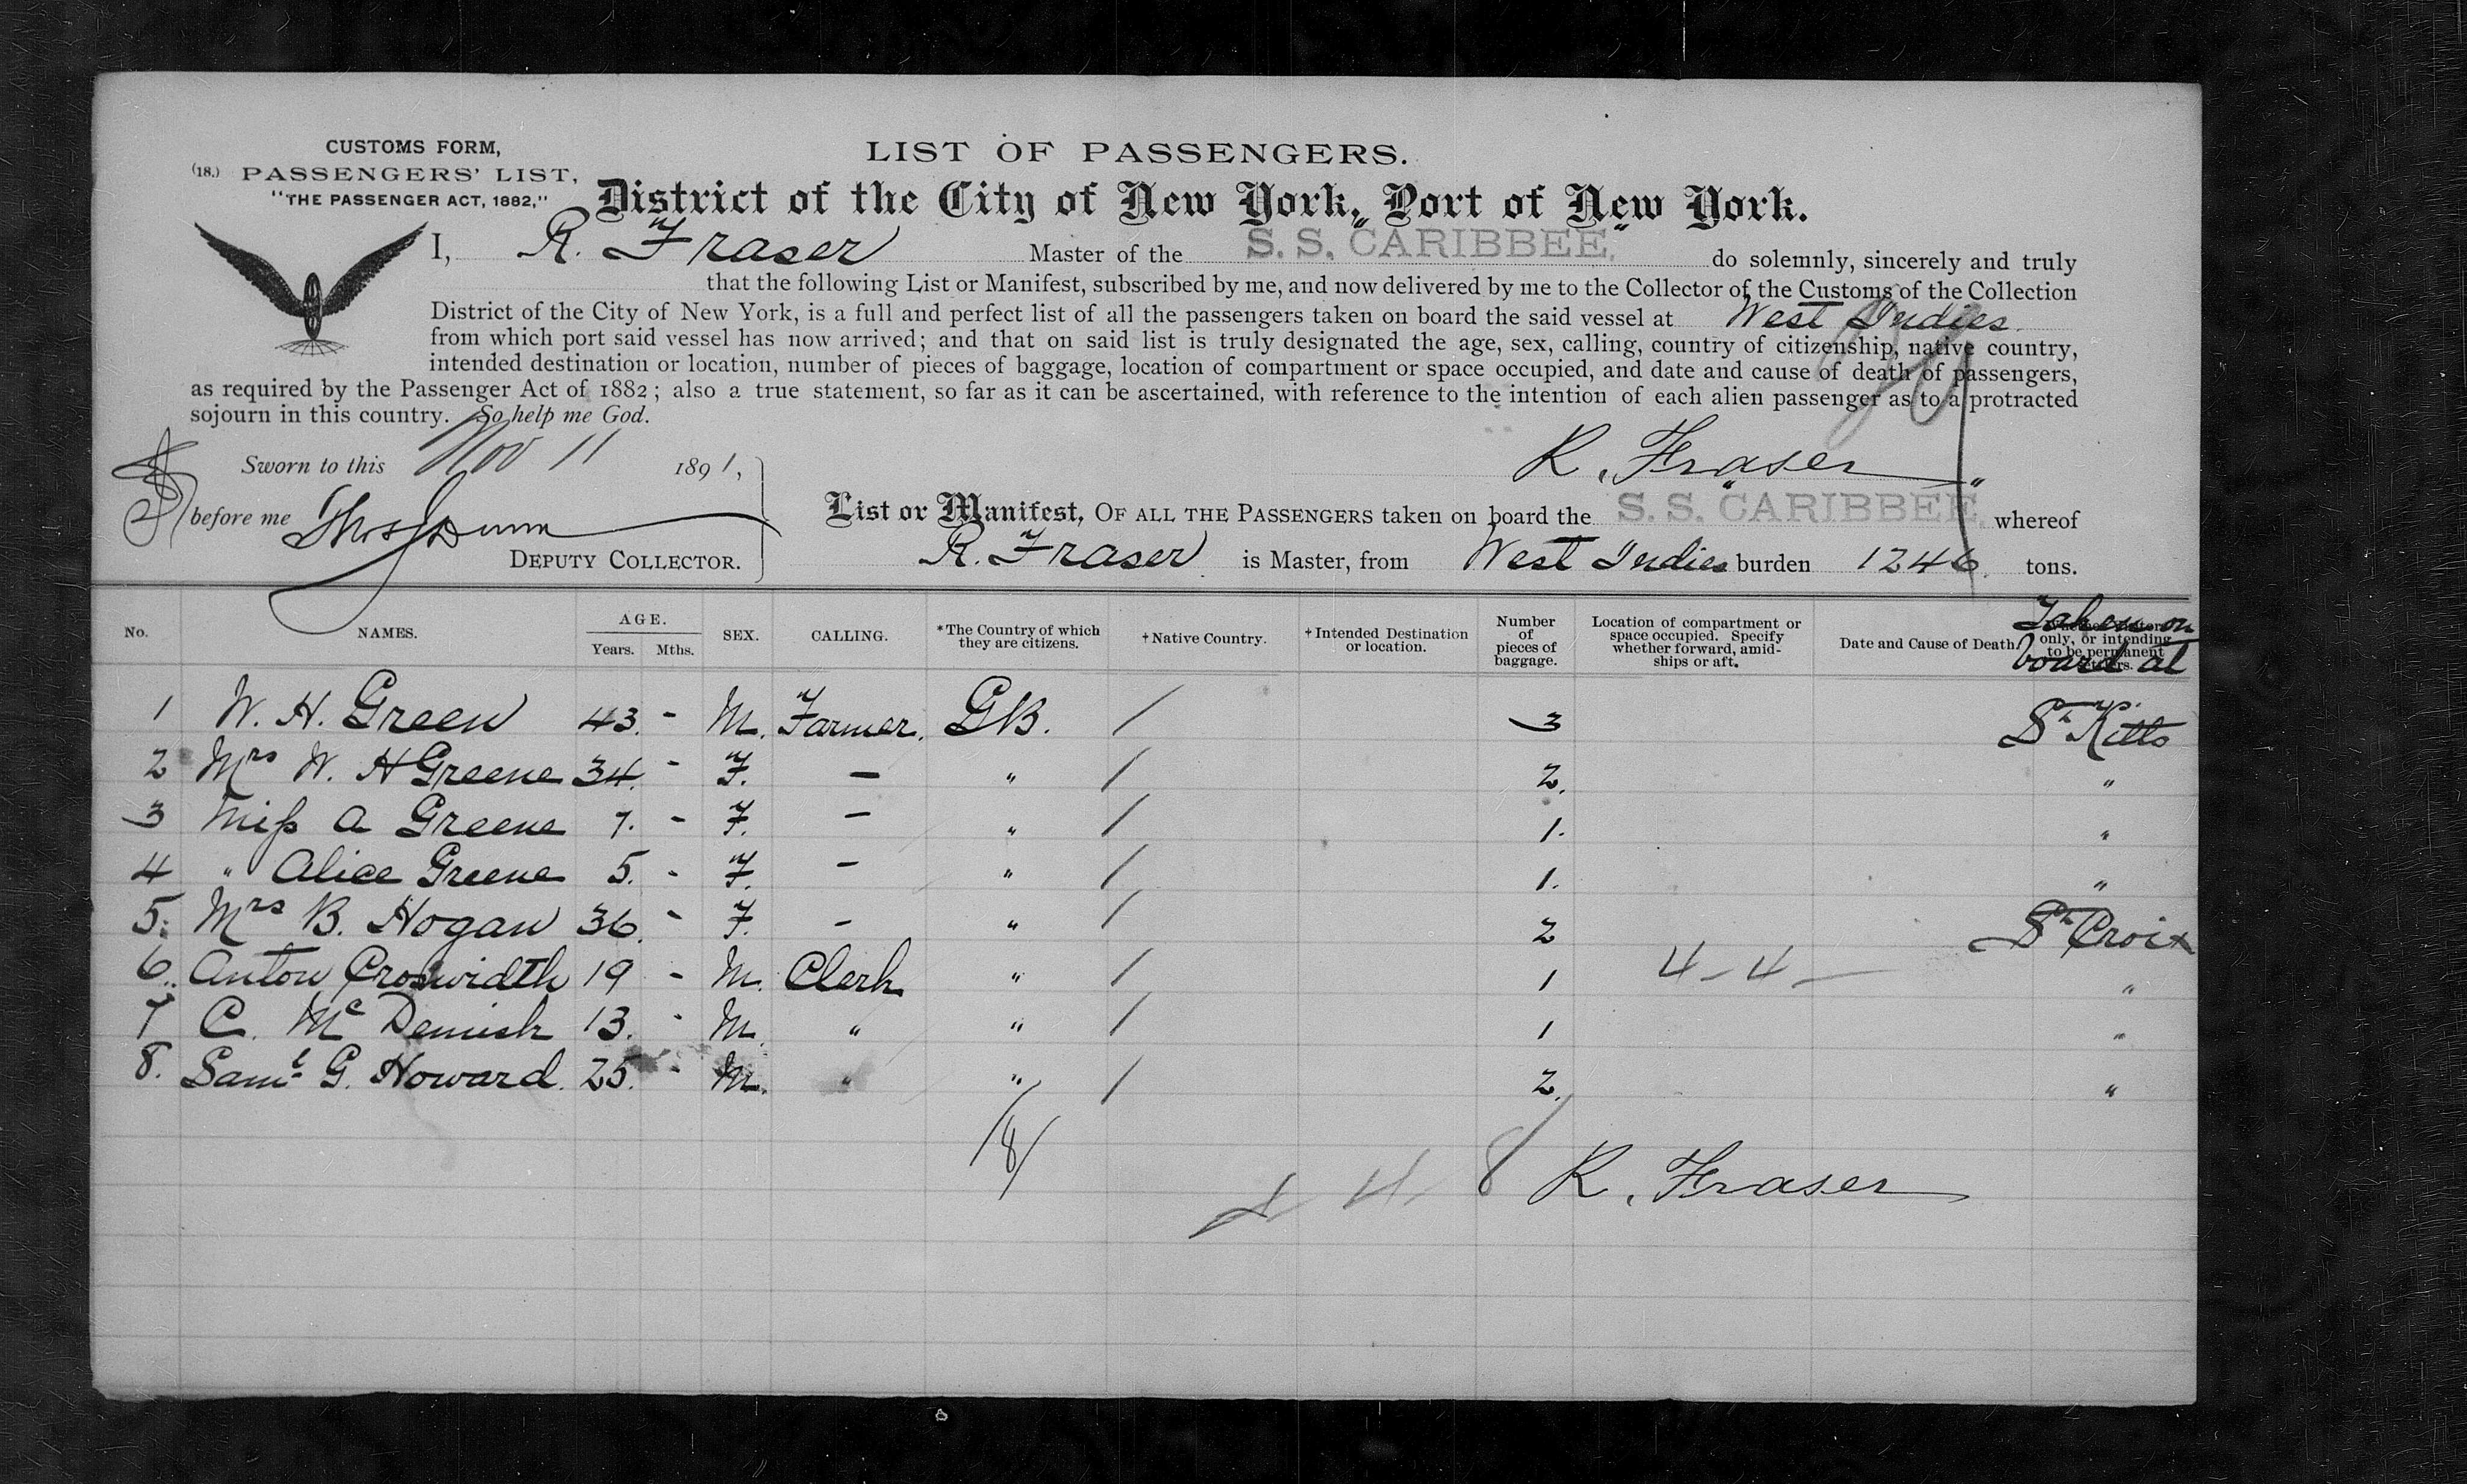 CUSTOMS FORM,
(18.) PASSENGERS' LIST,
"THE PASSENGER ACT, 1882,"
LIST OF PASSENGERS.
District of the City of New York, Port of New York.
I, R. Fraser Master of the "S. S. CARIBBEE," do solemnly, sincerely and truly
that the following List or Manifest, subscribed by me, and now delivered by me to the Collector of the Customs of the Collection
District of the City of New York, is a full and perfect list of all the passengers taken on board the said vessel at West Indies
from which port said vessel has now arrived; and that on said list is truly designated the age, sex, calling, country of citizenship, native country,
intended destination or location, number of pieces of baggage, location of compartment or space occupied, and date and cause of death of passengers,
as required by the Passenger Act of 1882; also a true statement, so far as it can be ascertained, with reference to the intention of each alien passenger as to a protracted
sojourn in this country. So help me God.
Sworn to this Nov 11 1891,
R. Fraser
before me
DEPUTY COLLECTOR.
List or Manifest, OF ALL THE PASSENGERS taken on board the "S. S. CARIBBEE," whereof
R. Fraser is Master, from West Indies burden 1246 tons.
No. NAMES. AGE. Years. Mths. SEX. CALLING. *The Country of which they are citizens. †Native Country. †Intended Destination or location. Number of pieces of baggage. Location of compartment or space occupied. Specify whether forward, amidships or aft. Date and Cause of Death. Taken on board at
1 W. H. Green 43. - M. Farmer. GB. / 3 St Kitts
2 Mrs W. H Greene 34. - F. — " / 2. "
3 Miss A Greene 7. - F. — " / 1. "
4 " Alice Greene 5. - F. — " / 1. "
5. Mrs B. Hogan 36. - F. — " / 2 St Croix
6. Anton Croswidth 19 - M. Clerk " / 1 4 - 4 - "
7 C. Mc Demish 13. - M. " " / 1 "
8. Saml G. Howard. 25. - M. " " / 2. "
/8/
4 8/ R. Fraser